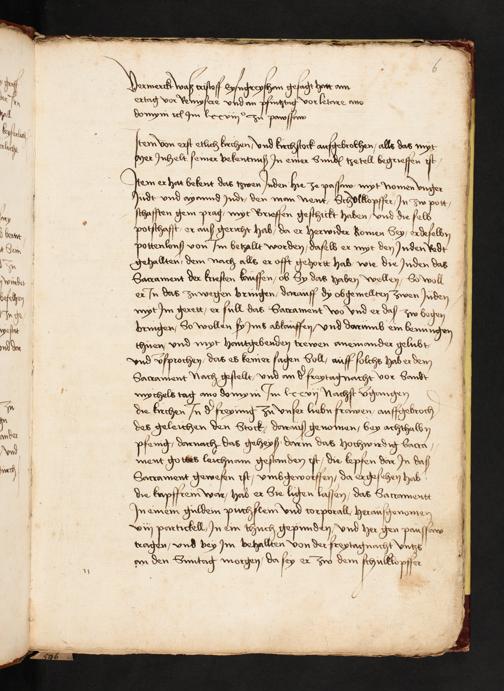 6
Vermerckt was cristoff eysengreyßham gesagt hatt am
ertag vor kemisere und an pfintztag vor letare ano
domini etc im lxxvii° zu passaw
Item von erst etlich kirchen und kirchstock aufgebrochen, alls das myt
seiner bekentnuß In einer Sundern zetell begriffen ist
Item er hat bekent das zwen Juden hie ze passaw myt Nomen
Judt und Judt, den man nent, Schulklopffer, In zu pott
schafften gem prag, myt brieffen geschickt haben, und die selb
potschafft er auß gericht hab, da er herwider komen sey, er deselben
pottenlons von Im betzallt worden, daselb er myt den Juden Redt
gehallten, dem nach alls er offt gehort hab wie die Juden das
Sacrament der kristen kauffen, ob sy das haben wellen, So woll
er In das zuwegen bringen, darauff dy obgemellten zwen Juden
myt Im gerett, er sull das Sacrament wo und er das zu wegen
bringen, So wollen sy Ims abkauffen, und darumb ein benuegen
thuen, und myt hantgebenden trewen aneinander gelubt
und versprochen, das es keiner sagen soll, auff solchs hab er dem
Sacrament Nach gestellt, und an der freytagnacht vor Sandt
mychels tag ano domini Im lxxvii Nachst vergangen
die kirchen In der freyung zu unser lieben frawen, auffgebroch
des geleichen den Stock, daraus genomen, bey achthalbn
pfenig, darnach das geheyß, darin das Hochwirdig Sacra
ment gottes leichnam gestanden ist, die kepsen dar In das
Sacrament gewesen ist, umbgeworffen, da er gesehen hab
die kupffrein war, hab er Sie ligen lassen, das Sacramentt
In einem guldem puchslein und corporall, Herausgenomen
viii partickell, In ein thuch gepunden, und Her gen passaw
tragen, und bey Im behallten von der freytagnacht untz
an den Suntag morgen, da sey er zw dem schulklopffer